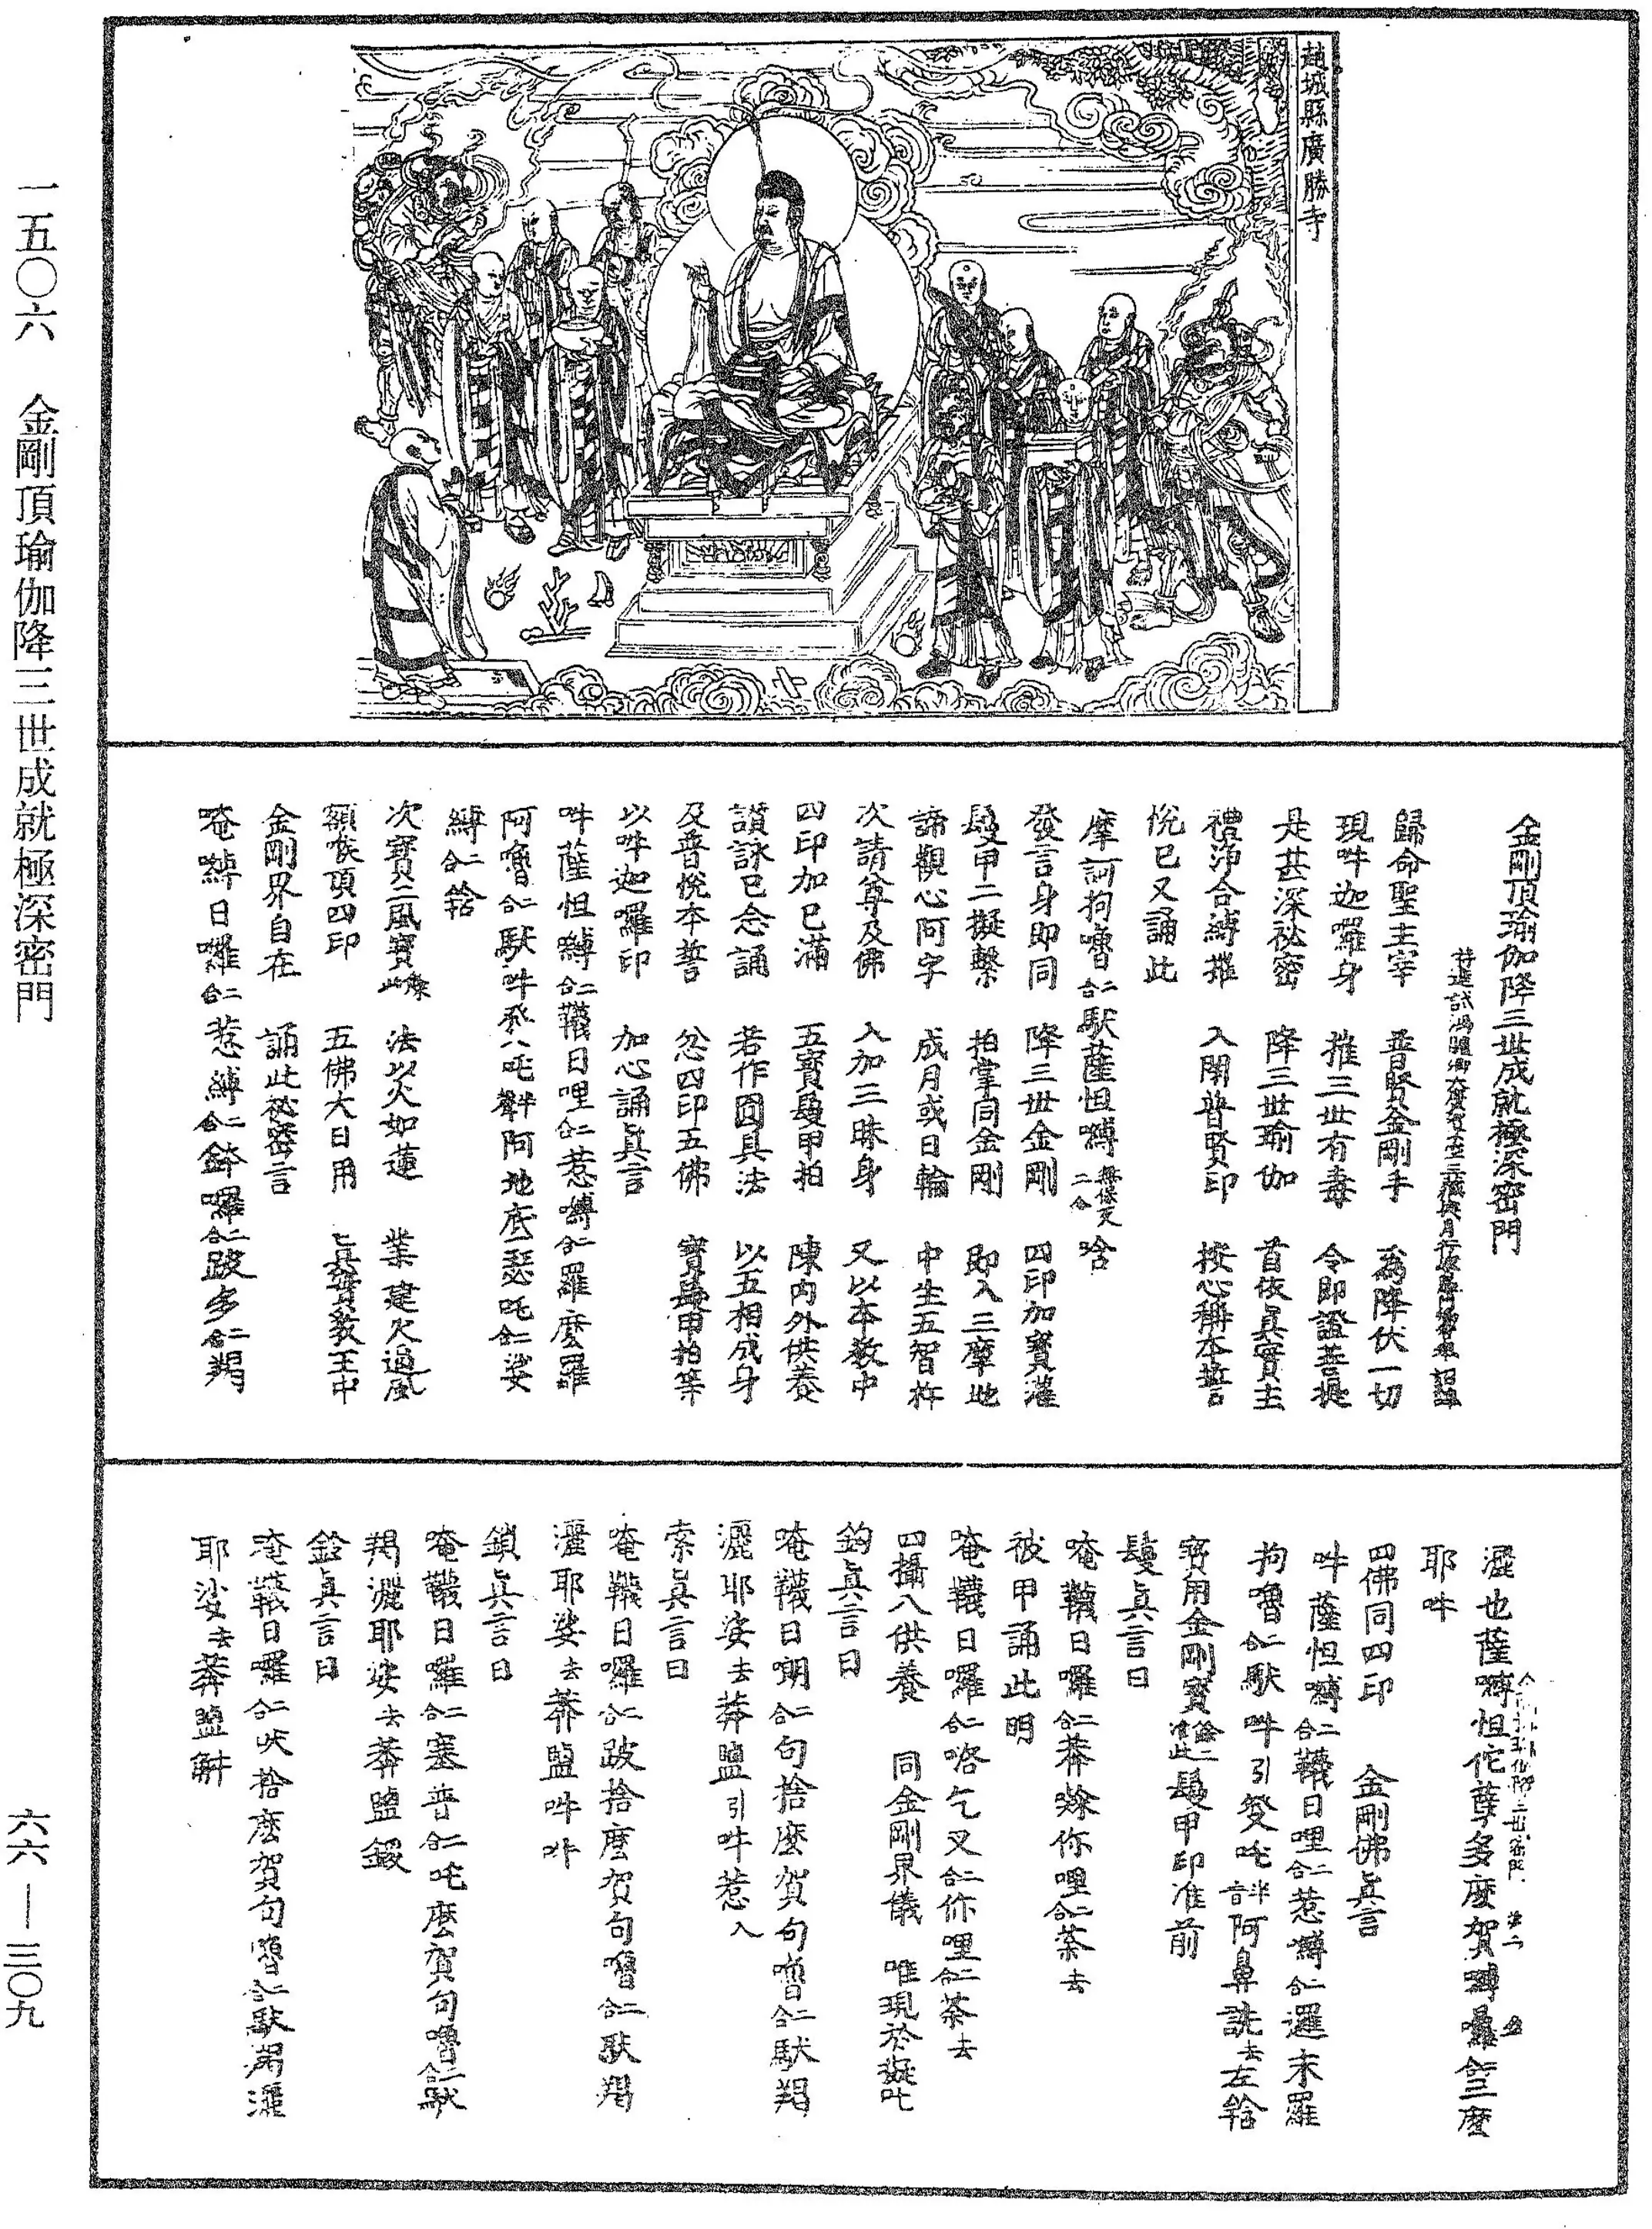 趙城縣廣勝寺
金剛頂瑜伽降三世成就極深密門
歸命聖主宰 普賢金剛手 為降伏一切
現吽迦羅身 摧三世有毒 令即證菩提
是甚深祕密 降三世瑜伽 首依真實主
禮沛合縛摧 入開普賢印 按心稱本誓
悅已又誦此
摩訶拘嚕二合馱薩怛嚩二合 唅
發言身即同 降三世金剛 四印加寶灌
鬘甲二擬繫 拍掌同金剛 即入三摩地
諦觀心阿字 成月或日輪 中生五智杵
次請尊及佛 入加三昧身 又以本教中
四印加已滿 五寶鬘甲拍 陳內外供養
讚詠已念誦 若作圓具法 以五相成身
及普悅本誓 忿四印五佛 寶鬘甲拍等
以吽迦羅印 加心誦真言
吽薩怛嚩二合韈日哩二合惹嚩二合羅麼羅
阿嚕二合馱吽發八吒半聲阿地底瑟吒二合娑
縛二合
次寶二風寶 法以火如蓮 業建火過風
額喉頂四印 五佛大日用 真實教王中
金剛界自在 誦此祕密言
唵嚩日囉二合惹縛二合鉢囉二合跛多二合羯
灑也薩嚩怛佗孽多麼賀嚩曩三合麼
耶吽
四佛同四印 金剛佛真言
吽薩怛嚩二合韈日哩二合惹嚩二合邏末羅
拘嚕二合馱吽引發吒半音阿鼻詵去左
寶用金剛寶 鬘甲印准前
鬘真言曰
唵韈日囉二合莽 你哩二合荼去
被甲誦此明
唵韈日囉二合咯乞叉二合你哩二合荼去
四攝八供養 同金剛界儀 唯現於擬叱
鉤真言曰
唵韈日朗二合句捨麼賀句嚕二合馱羯
灑耶娑去莽鹽引吽惹入
索真言曰
唵韈日囉二合跛捨麼賀句嚕二合馱羯
灑耶娑去莽鹽吽
鎖真言曰
唵韈日囉二合塞普二合吒麼賀句嚕二合馱
羯灑耶娑去莽鹽鑁
鈴真言曰
唵韈日囉二合吠捨麼賀句嚕二合馱羯灑
耶娑去莽鹽
一五〇六 金剛頂瑜伽降三世成就極深密門
六六—三〇九